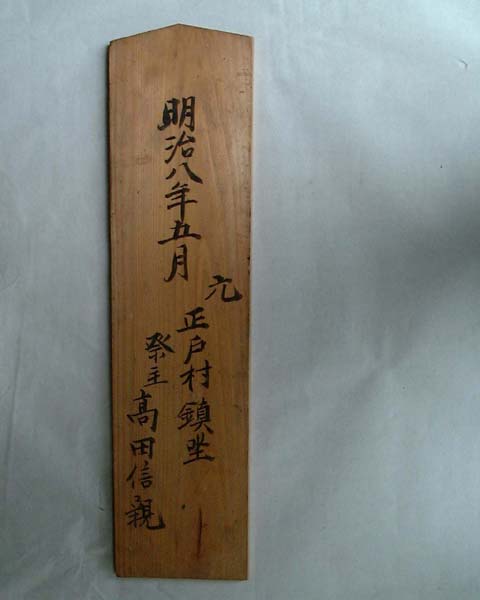 明治八年五月
元
正戸村鎮坐
祭主
高田信親